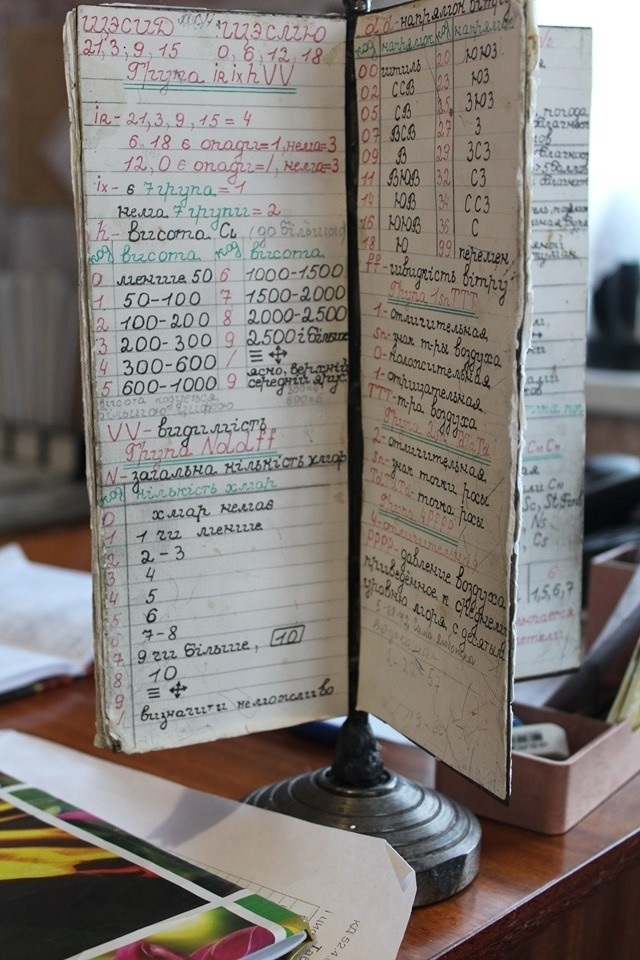 ЩЭСИД ЩЭСЛЮ
21, 3, 9, 15 0, 6, 12, 18
Група iʀ ix h VV
iʀ - 21, 3, 9, 15 = 4
6, 18 є опади = 1, нема = 3
12, 0 є опади = /, нема = 3
ix - є 7 група = 1
нема 7 групи = 2
h - висота CL (до більшого)
код висота код висота
0 менше 50 6 1000-1500
1 50-100 7 1500-2000
2 100-200 8 2000-2500
3 200-300 9 2500 і більше
4 300-600 / ≡ ✥
5 600-1000 9 ясно, верхній середній ярус
висота кодується
більшою цифрою
VV - видимість
Група Nddff
N - загальна кількість хмар
код кількість хмар
0 хмар немає
1 1 чи менше
2 2-3
3 4
4 5
5 6
6 7-8
7 9 чи більше, 10
8 10
9 ≡ ✥
/ визначити неможливо
dd - напрямок вітру
код напрямок код напрямок
00 штиль 20 ЮЮЗ
02 ССВ 23 ЮЗ
05 СВ 25 ЗЮЗ
07 ВСВ 27 З
09 В 29 ЗСЗ
11 ВЮВ 32 СЗ
14 ЮВ 34 ССЗ
16 ЮЮВ 36 С
18 Ю 99 перемен
ff - швидкість вітру
Група 1snTTT
1 - отличительная
sn - знак т-ры воздуха
0 - положительная
1 - отрицательная
TTT - т-ра воздуха
Група 2sn TdTdTd
2 - отличительная
sn - знак точки росы
TdTdTd - точка росы
Група 4pppp
4 - отличительная
pppp - давление воздуха
приведённое к среднему
уровню моря, с десятым
погода
Cм Cн
Sc, St Frnb
Ns
Cs
6
1, 5, 6, 7
КД 524